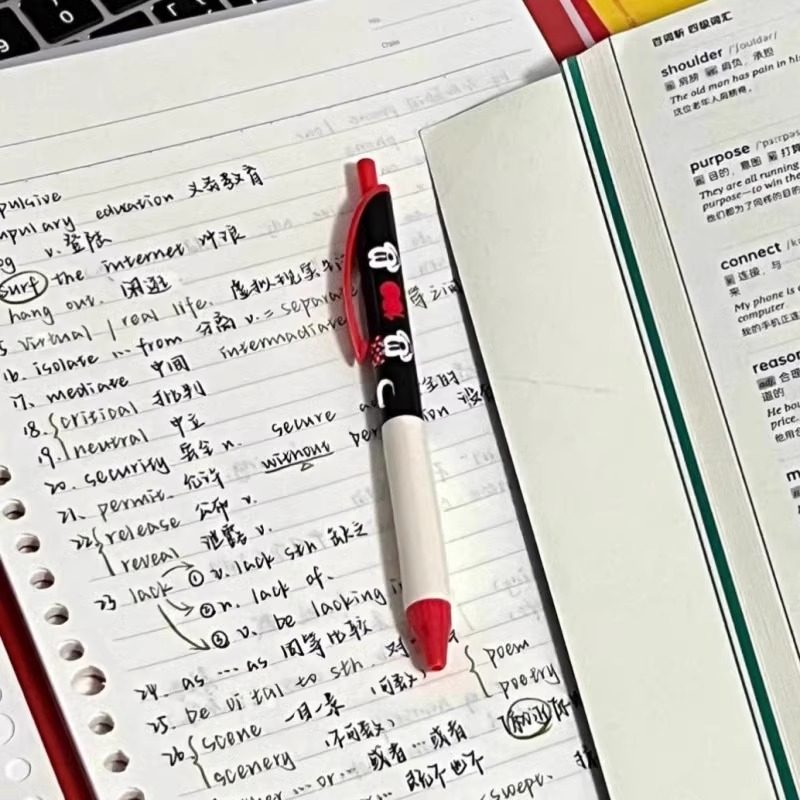 pulsive
mpulary education 义务教育
v. 登陆
surf the internet 冲浪
hang out. 闲逛
virtual / real life. 虚拟 现实
16. isolate ... from 分离 v. = separate
17. mediate 中间 intermadiate
18. critical 批判
19. neutral 中立
20. security 安全 n. secure
21. permit. 允许 without
22 release 公布 v.
reveal 泄露 v.
23 lack ① v. lack sth 缺乏
② n. lack of.
③ v. be lacking
24. as ... as 同等比较
25. be vital to sth.
poem
poetry
26 scene 一目一景 (可数)
scenery (不可数)
... or ... 或者...或者
既不也不
百词斩 四级词汇
shoulder /ˈʃəʊldər/
n 肩膀 vt 肩负，承担
The old man has pain in his
这位老年人肩膀疼。
purpose
n 目的，意图
They are all running
purpose—to win the
他们都为了同样的目的
connect
连接，与
来
My phone is
computer
我的手机正连
reason
adj 合理
道的
He bou
price.
他用合
m